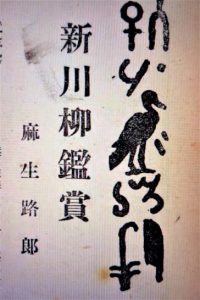 新川柳鑑賞
麻生路郎